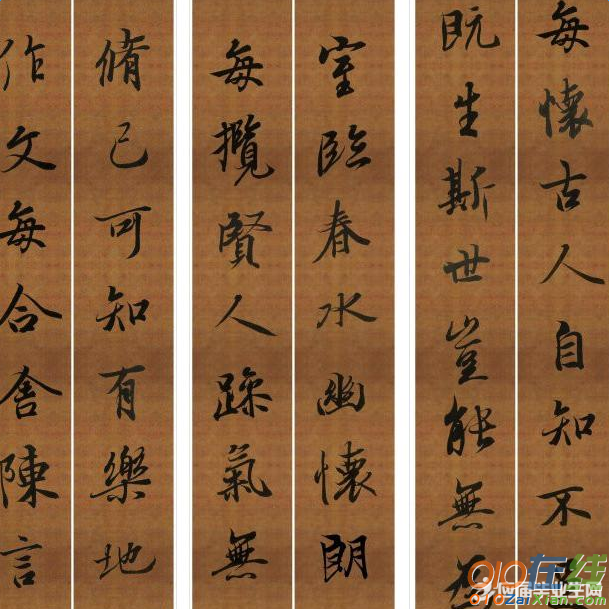 每懷古人自知不
既生斯世豈能無
室臨春水幽懷朗
每攬賢人躁氣無
脩己可知有樂地
作文每合舍陳言
应届毕业生网
010在线
010zaixian.com